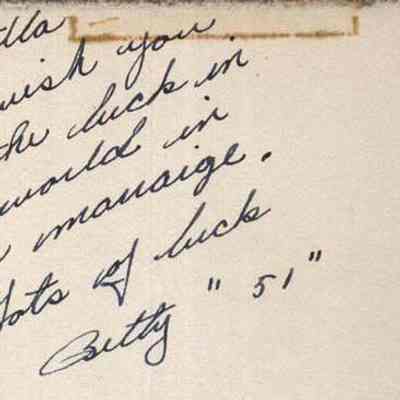 lla
wish you
the luck in
world in
manaige.
Lots of luck
Betty "51"